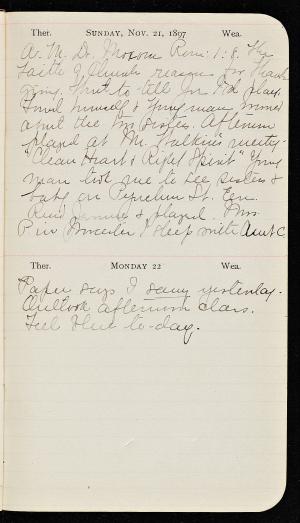 Ther. SUNDAY, NOV. 21, 1897 Wea.
A. M. Dr. Rom: 1:8. The
faith of Church reason for Thanks
giving. to tell
himself & Young man
about the two sisters. Afternoon
played at Mr. meeting
"Clean Heart & Right Spirit" Young
man took me to see sisters &
baby on St. Eve.
Read & played. Mrs.
P in I sleep with Aunt C
Ther. MONDAY 22 Wea.
Paper says I sang yesterday.
Outlook afternoon class.
Feel blue to-day.